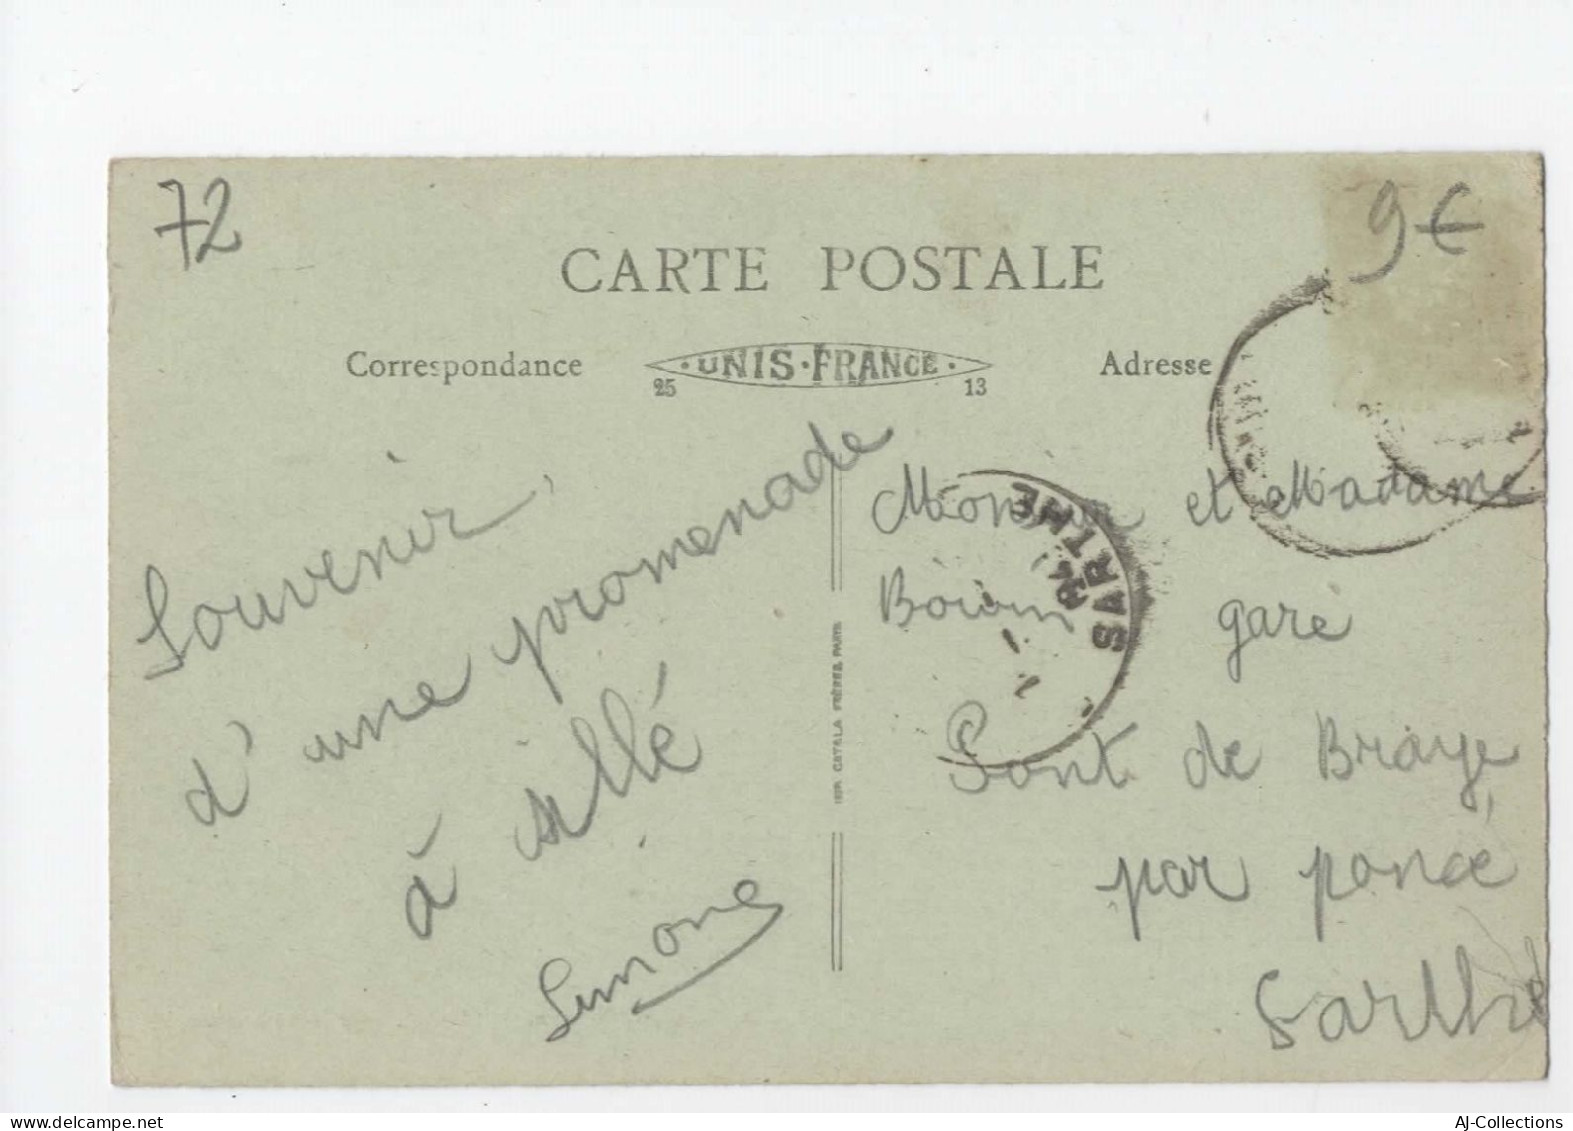 72
9€
CARTE POSTALE
Correspondance
· UNIS · FRANCE ·
25 13
Adresse
Souvenir
d'une promenade
à sillé
Simone
IMP. CATALA FRÈRES, PARIS
SARTHE
et Madame
gare
Pont de Braye
par poncé
Sarthe
www.delcampe.net
AJ-Collections